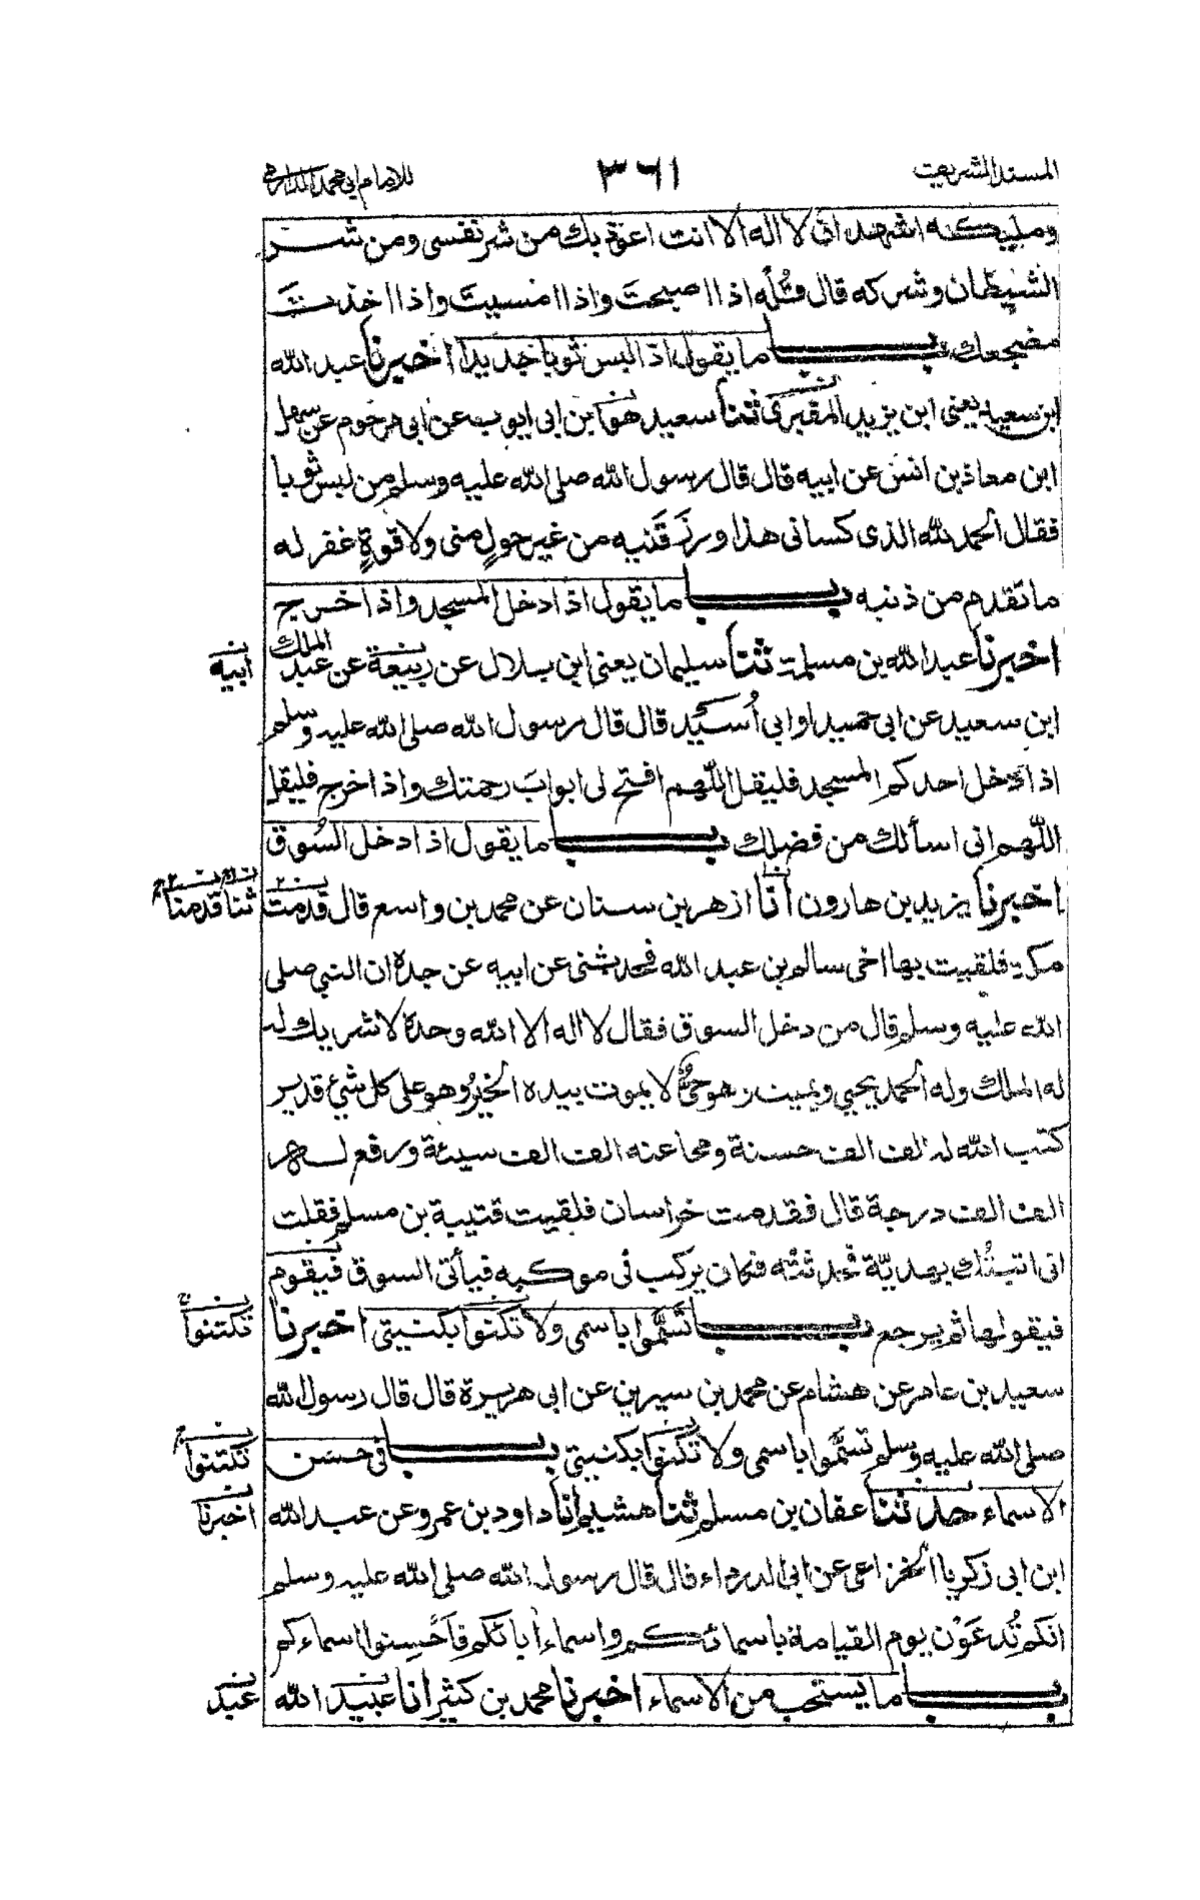 المسند الشريف ٣٦١ للامام ابي محمد الدارمي
ومليكه اشهد ان لا اله الا انت اعوذ بك من شر نفسى ومن شر
الشيطان وشركه قال قُلْهُ اذا اصبحتَ واذا امسيتَ واذا اخذت
مضجعك باب ما يقول اذا لبس ثوبا جديدا اخبرنا عبد الله
ابن سعيد يعنى ابن يزيد المقبرى ثنا سعيد هو ابن ابى ايوب عن ابى مرحوم عن سهل
ابن معاذ بن انس عن ابيه قال قال رسول الله صلى الله عليه وسلم من لبس ثوبا
فقال الحمد لله الذى كسانى هذا ورزَقَنيه من غير حولٍ منى ولا قوةٍ غفر له
ما تقدم من ذنبه باب ما يقول اذا دخل المسجد واذا خرج
اخبرنا عبد الله بن مسلمة ثنا سليمان يعنى ابن بلال عن ربيعة عن عبد الملك ابيه
ابن سعيد عن ابى حميد او ابى أُسَيْد قال قال رسول الله صلى الله عليه وسلم
اذا دخل احدكم المسجد فليقل اللّهم افتح لى ابوابَ رحمتك واذا خرج فليقل
اللّهم انى اسألك من فضلك باب ما يقول اذا دخل السُوق
اخبرنا يزيد بن هارون انا ازهر بن سنان عن محمد بن واسع قال قدمت ثنا قدمنا
مكة فلقيت بها اخى سالم بن عبد الله فحدثنى عن ابيه عن جده ان النبى صلى
الله عليه وسلم قال من دخل السوق فقال لا اله الا الله وحده لا شريك له
له الملك وله الحمد يحيي ويميت وهو حيٌّ لا يموت بيده الخيرُ وهو على كل شئ قدير
كتب الله له الف الف حسنة ومحا عنه الف الف سيئة ورفع له
الف الف درجة قال فقدمت خراسان فلقيت قتيبة بن مسلم فقلت
انى اتيتُك بهديّة فحدثتُه فكان يركب فى موكبه فيأتى السوق فيقوم
فيقولها ثم يرجع باب تَسَمَّوا باسمى ولا تكنوا بكنيتى اخبرنا تكتنوا
سعيد بن عامر عن هشام عن محمد بن سيرين عن ابى هريرة قال قال رسول الله
صلى الله عليه وسلم تَسَمَّوا باسمى ولا تَكَنَّوا بكنيتى باب فى حسن تكتنوا
الاسماء حدثنا عفان بن مسلم ثنا هشيم انا داود بن عمرو عن عبد الله اخبرنا
ابن ابى زكريا الخزاعى عن ابى الدرداء قال قال رسول الله صلى الله عليه وسلم
انكم تُدعَوْن يوم القيامة باسمائكم واسماء ابائكم فاَحْسِنوا اسماءكم
باب ما يستحب من الاسماء اخبرنا محمد بن كثير انا عبيد الله عبد